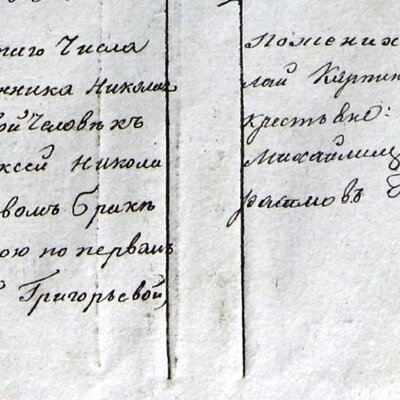 тщего Числа
нника Николая
вой Человѣкъ
ксей Никола
вомъ бракѣ
ою по первомъ
Григорьевой,
По жених
лай Карпин
крестьяне:
Михайлищ
расимовъ